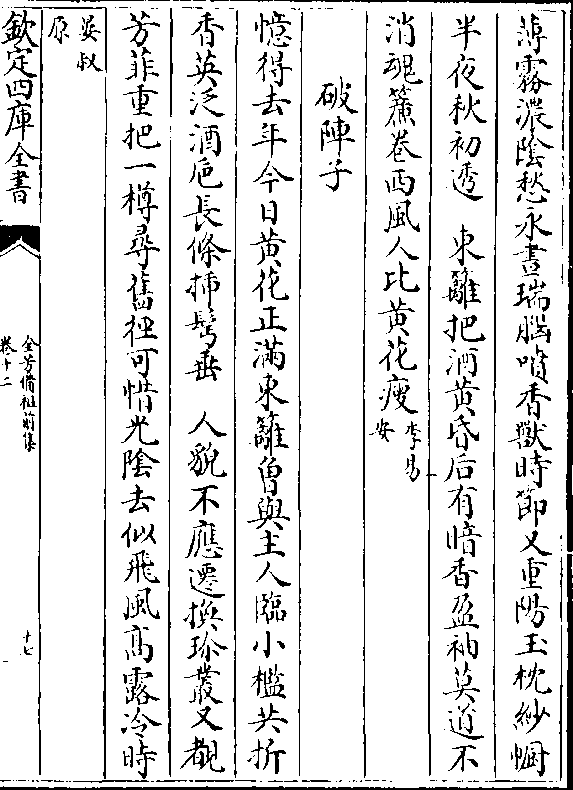 薄霧濃陰愁永晝瑞腦噴香獸時節又重陽玉枕紗幮
半夜秋初透　東籬把酒黃昏后有暗香盈袖莫道不
消魂簾卷西風人比黃花瘦李易安
破陣子
憶得去年今日黃花正滿東籬曾與主人臨小檻共折
香英泛酒巵長條挿鬢垂　人貌不應遷換珍叢又覩
芳菲重把一樽尋舊徑可惜光陰去似飛風髙露冷時
晏叔原
欽定四庫全書
全芳備祖前集
卷十二
十七